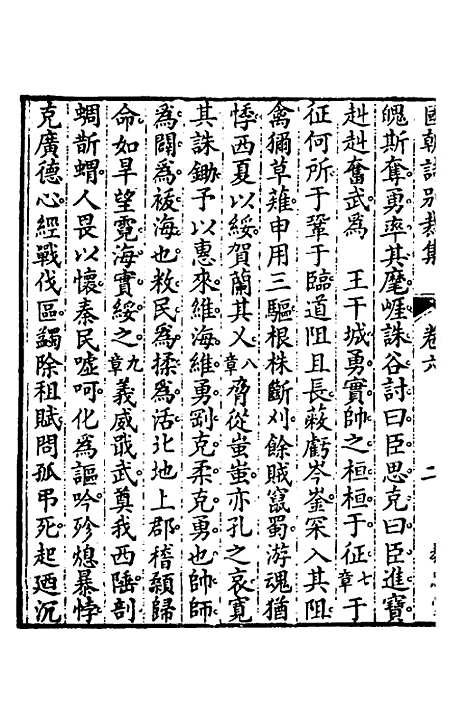 國朝詩別裁集 卷六 二
魄斯奪勇率其麾崕誅谷討曰臣思克曰臣進寶
赳赳奮武爲 王干城勇實帥之桓桓于征七章于
征何所于鞏于臨道阻且長蔽虧岑崟罙入其阻
禽獮草薙申用三驅根株斷刈餘賊竄蜀游魂猶
悸西夏以綏賀蘭其乂八章脅從蚩蚩亦孔之哀寬
其誅鋤予以惠來維海維勇剛克柔克勇也帥師
爲闘爲祓海也敉民爲揉爲活北地上郡稽顙歸
命如旱望霓海實綏之九章義威戢武奠我西陲剖
蜩斮蝟人畏以懷秦民噓呵化爲謳吟殄熄暴悖
克廣德心經戰伐區蠲除租賦問孤弔死起廼沉